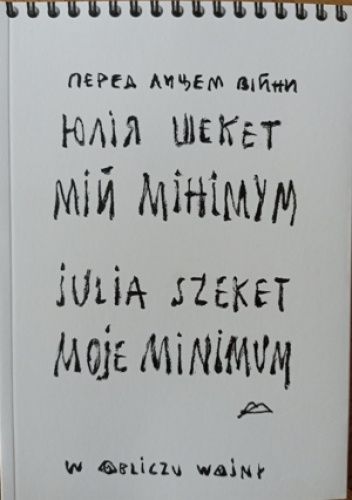 ПЕРЕД ЛИЦЕМ ВІЙНИ
ЮЛІЯ ШЕКЕТ
МІЙ МІНІМУМ
JULIA SZEKET
MOJE MINIMUM
W OBLICZU WOJNY